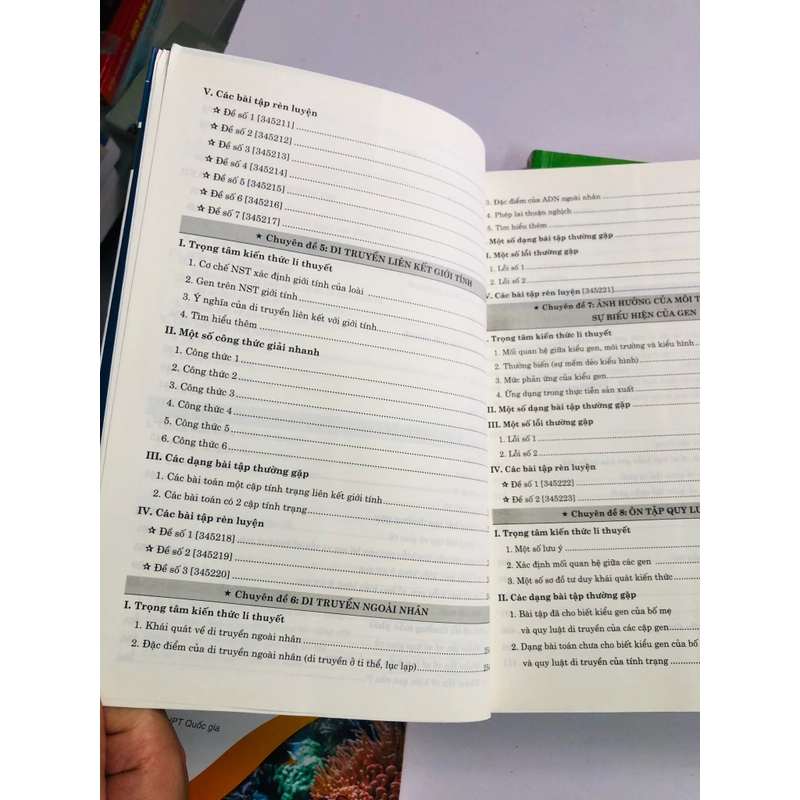 V. Các bài tập rèn luyện
☆ Đề số 1 [345211]
☆ Đề số 2 [345212]
☆ Đề số 3 [345213]
☆ Đề số 4 [345214]
☆ Đề số 5 [345215]
☆ Đề số 6 [345216]
☆ Đề số 7 [345217]
★ Chuyên đề 5: DI TRUYỀN LIÊN KẾT GIỚI TÍNH
I. Trọng tâm kiến thức lí thuyết
1. Cơ chế NST xác định giới tính của loài
2. Gen trên NST giới tính
3. Ý nghĩa của di truyền liên kết với giới tính
4. Tìm hiểu thêm
II. Một số công thức giải nhanh
1. Công thức 1
2. Công thức 2
3. Công thức 3
4. Công thức 4
5. Công thức 5
6. Công thức 6
III. Các dạng bài tập thường gặp
1. Các bài toán một cặp tính trạng liên kết giới tính
2. Các bài toán có 2 cặp tính trạng
IV. Các bài tập rèn luyện
☆ Đề số 1 [345218]
☆ Đề số 2 [345219]
☆ Đề số 3 [345220]
★ Chuyên đề 6: DI TRUYỀN NGOÀI NHÂN
I. Trọng tâm kiến thức lí thuyết
1. Khái quát về di truyền ngoài nhân
2. Đặc điểm của di truyền ngoài nhân (di truyền ở ti thể, lục lạp)
3. Đặc điểm của ADN ngoài nhân
4. Phép lai thuận nghịch
5. Tìm hiểu thêm
Một số dạng bài tập thường gặp
I. Một số lỗi thường gặp
1. Lỗi số 1
2. Lỗi số 2
V. Các bài tập rèn luyện [345221]
★ Chuyên đề 7: ẢNH HƯỞNG CỦA MÔI T
SỰ BIỂU HIỆN CỦA GEN
I. Trọng tâm kiến thức lí thuyết
1. Mối quan hệ giữa kiểu gen, môi trường và kiểu hình
2. Thường biến (sự mềm dẻo kiểu hình)
3. Mức phản ứng của kiểu gen
4. Ứng dụng trong thực tiễn sản xuất
II. Một số dạng bài tập thường gặp
III. Một số lỗi thường gặp
1. Lỗi số 1
2. Lỗi số 2
IV. Các bài tập rèn luyện
☆ Đề số 1 [345222]
☆ Đề số 2 [345223]
★ Chuyên đề 8: ÔN TẬP QUY LU
I. Trọng tâm kiến thức lí thuyết
1. Một số lưu ý
2. Xác định mối quan hệ giữa các gen
3. Một số sơ đồ tư duy khái quát kiến thức
II. Các dạng bài tập thường gặp
1. Bài tập đã cho biết kiểu gen của bố mẹ
và quy luật di truyền của các cặp gen
2. Dạng bài toán chưa cho biết kiểu gen của bố
và quy luật di truyền của tính trạng
HPT Quốc gia